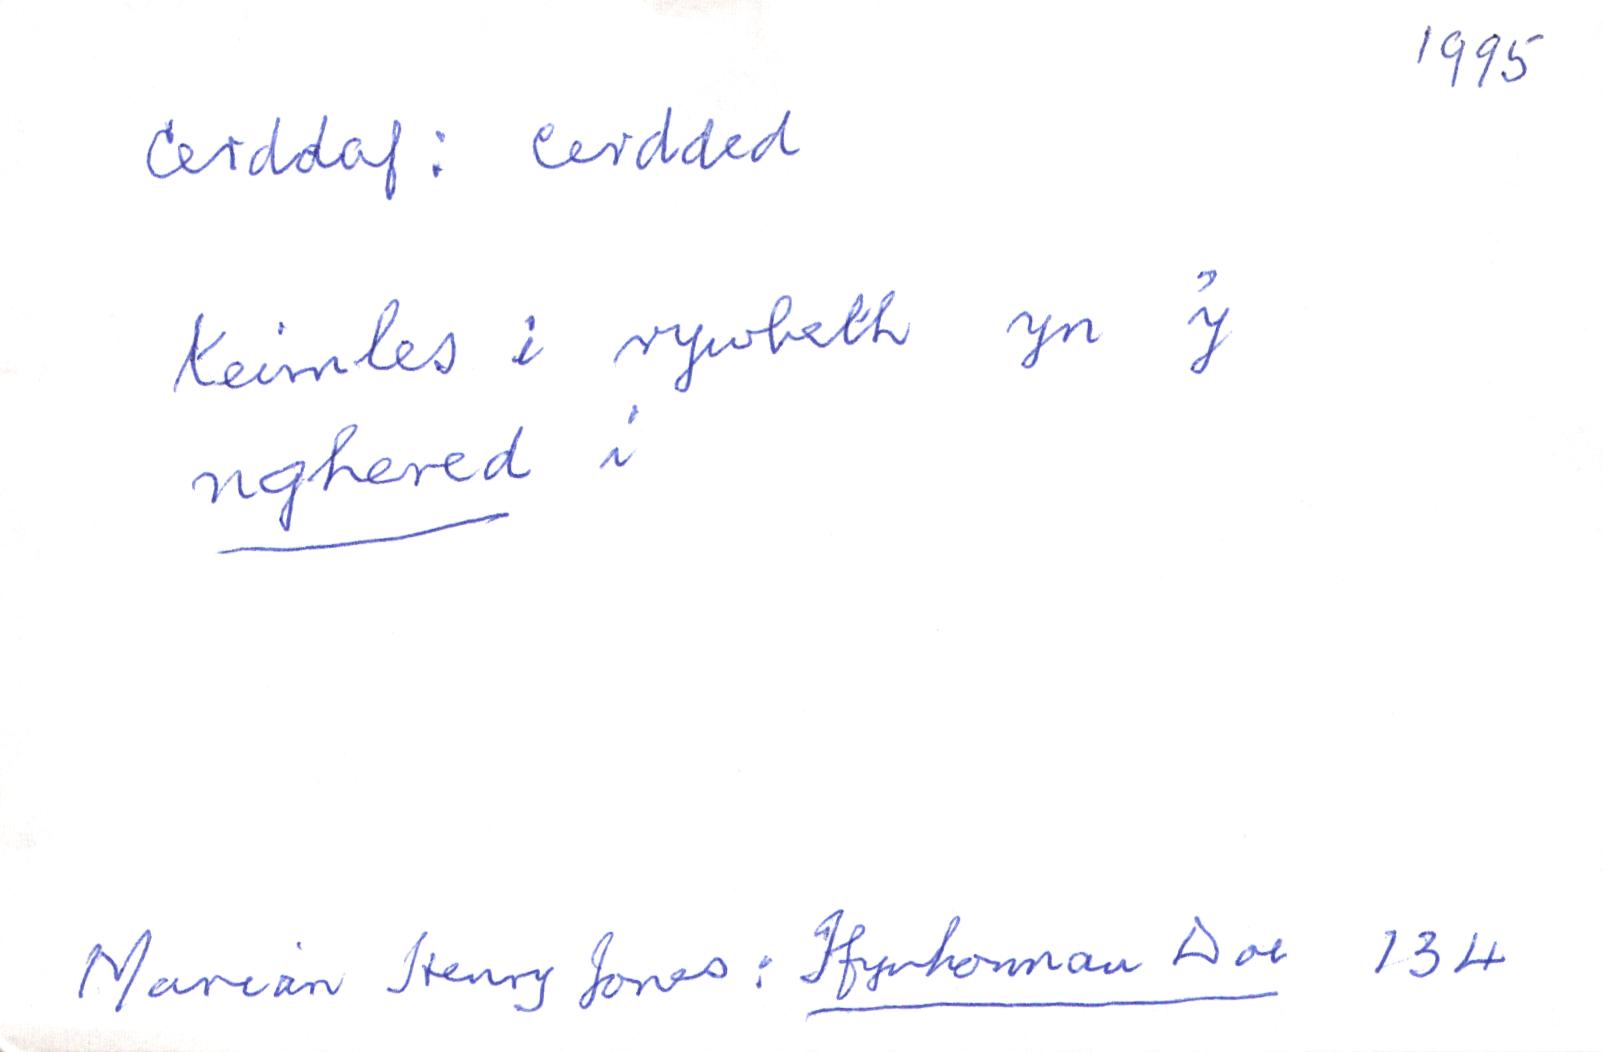 1995
Cerddaf: cerdded
Keimles i rywbeth yn 'y
nghered i
Marian Henry Jones: Ffynhonnau Doe 134